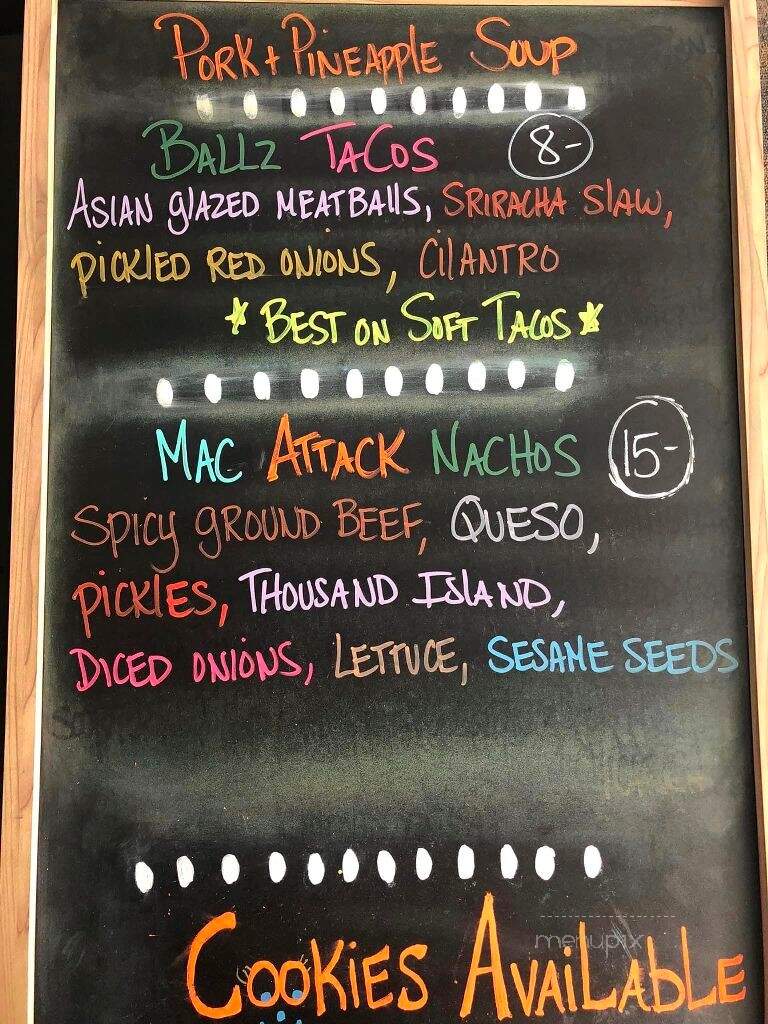 PORK + PINEAPPLE SOUP
BALLZ TACOS 8-
ASIAN GLAZED MEATBALLS, SRIRACHA SLAW,
PICKLED RED ONIONS, CILANTRO
* BEST ON SOFT TACOS *
MAC ATTACK NACHOS 15-
SPICY GROUND BEEF, QUESO,
PICKLES, THOUSAND ISLAND,
DICED ONIONS, LETTUCE, SESAME SEEDS
menupix
COOKIES AVAILABLE